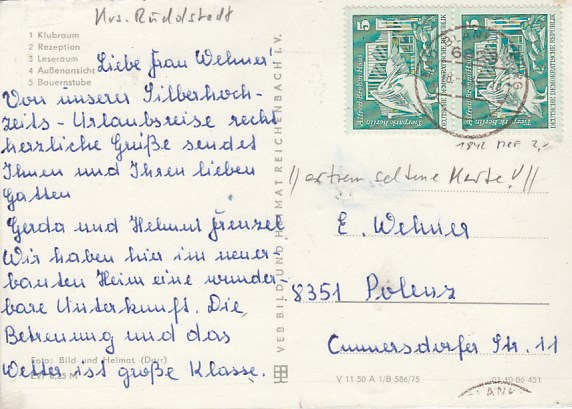 Krs. Rudolstadt
1 Klubraum
2 Rezeption
3 Leseraum
4 Außenansicht
5 Bauernstube
Liebe Frau Wehner!
Von unserer Silberhoch-
zeits-Urlaubsreise recht
herzliche Grüße sendet
Ihnen und Ihren lieben
Gatten
Gerda und Helmut Frenzel
Wir haben hier im neuer-
bauten Heim eine wunder-
bare Unterkunft. Die
Betreuung und das
Wetter ist große Klasse.
Foto: Bild und Heimat (Darr)
EVP 0,25 M
VEB BILD UND HEIMAT REICHENBACH I. V.
5
Tierpark Berlin
DEUTSCHE DEMOKRATISCHE REPUBLIK
5
Tierpark Berlin
DEUTSCHE DEMOKRATISCHE REPUBLIK
1842 MeF 2,-
//extrem seltene Karte!//
E. Wehner
8351 Polenz
Cunnersdorfer Str. 11
V 11 50 A 1/B 586/75
01 10 06 451